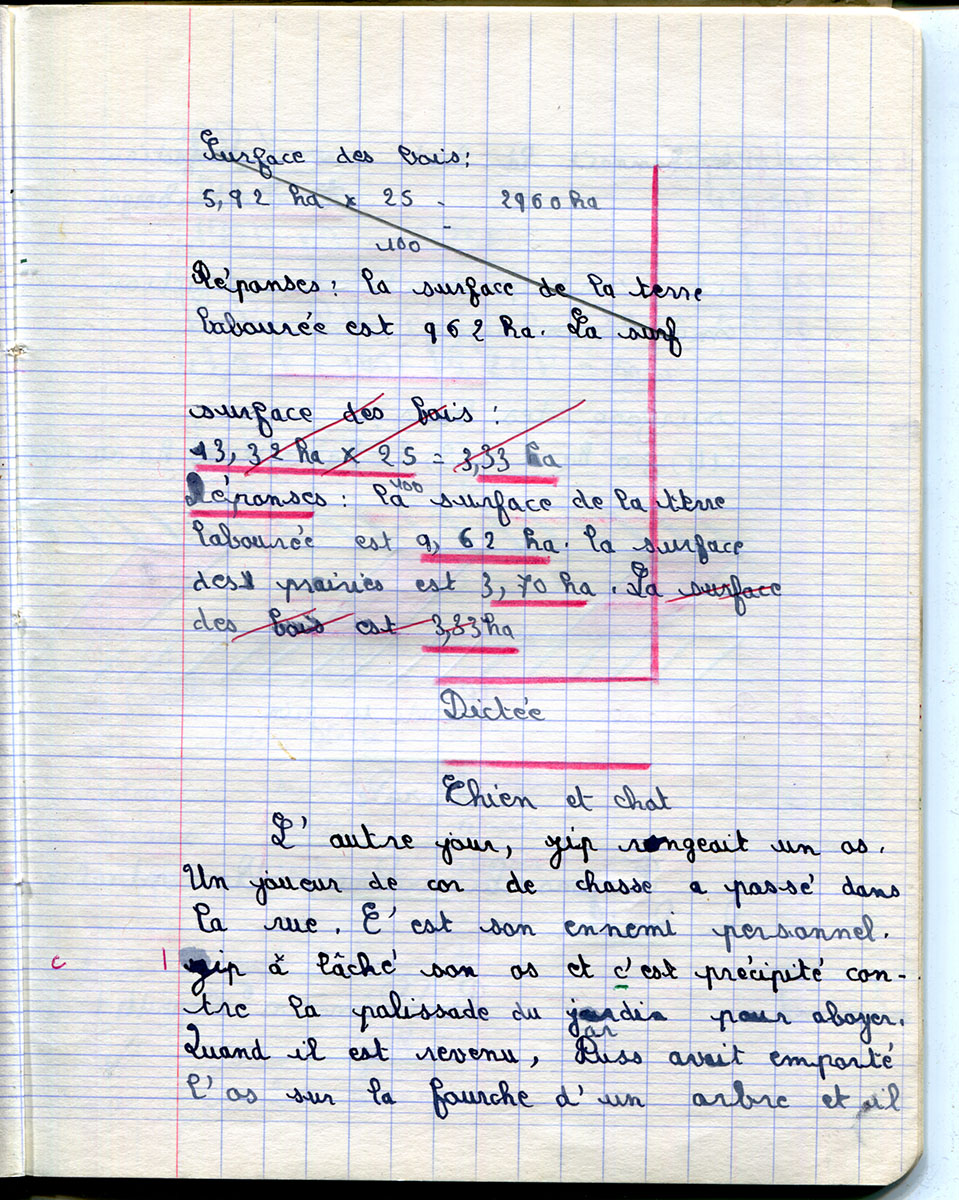 Surface des bois:
5,92 ha x 25 = 2960 ha
100
Réponses: la surface de la terre
labourée est 962 ha. La surf
surface des bois:
13,32 ha x 25 = 3,33 ha
100
Réponses: la surface de la terre
labourée est 9,62 ha. la surface
des prairies est 3,70 ha. La surface
des bois est 3,33 ha
Dictée
Chien et chat
L'autre jour, yip rongeait un os.
Un joueur de cor de chasse a passé dans
la rue. C'est son ennemi personnel.
c 1 yip à lâché son os et c'est précipité con-
tre la palissade du jardin pour aboyer.
ar
Quand il est revenu, Puss avait emporté
l'os sur la fourche d'un arbre et il